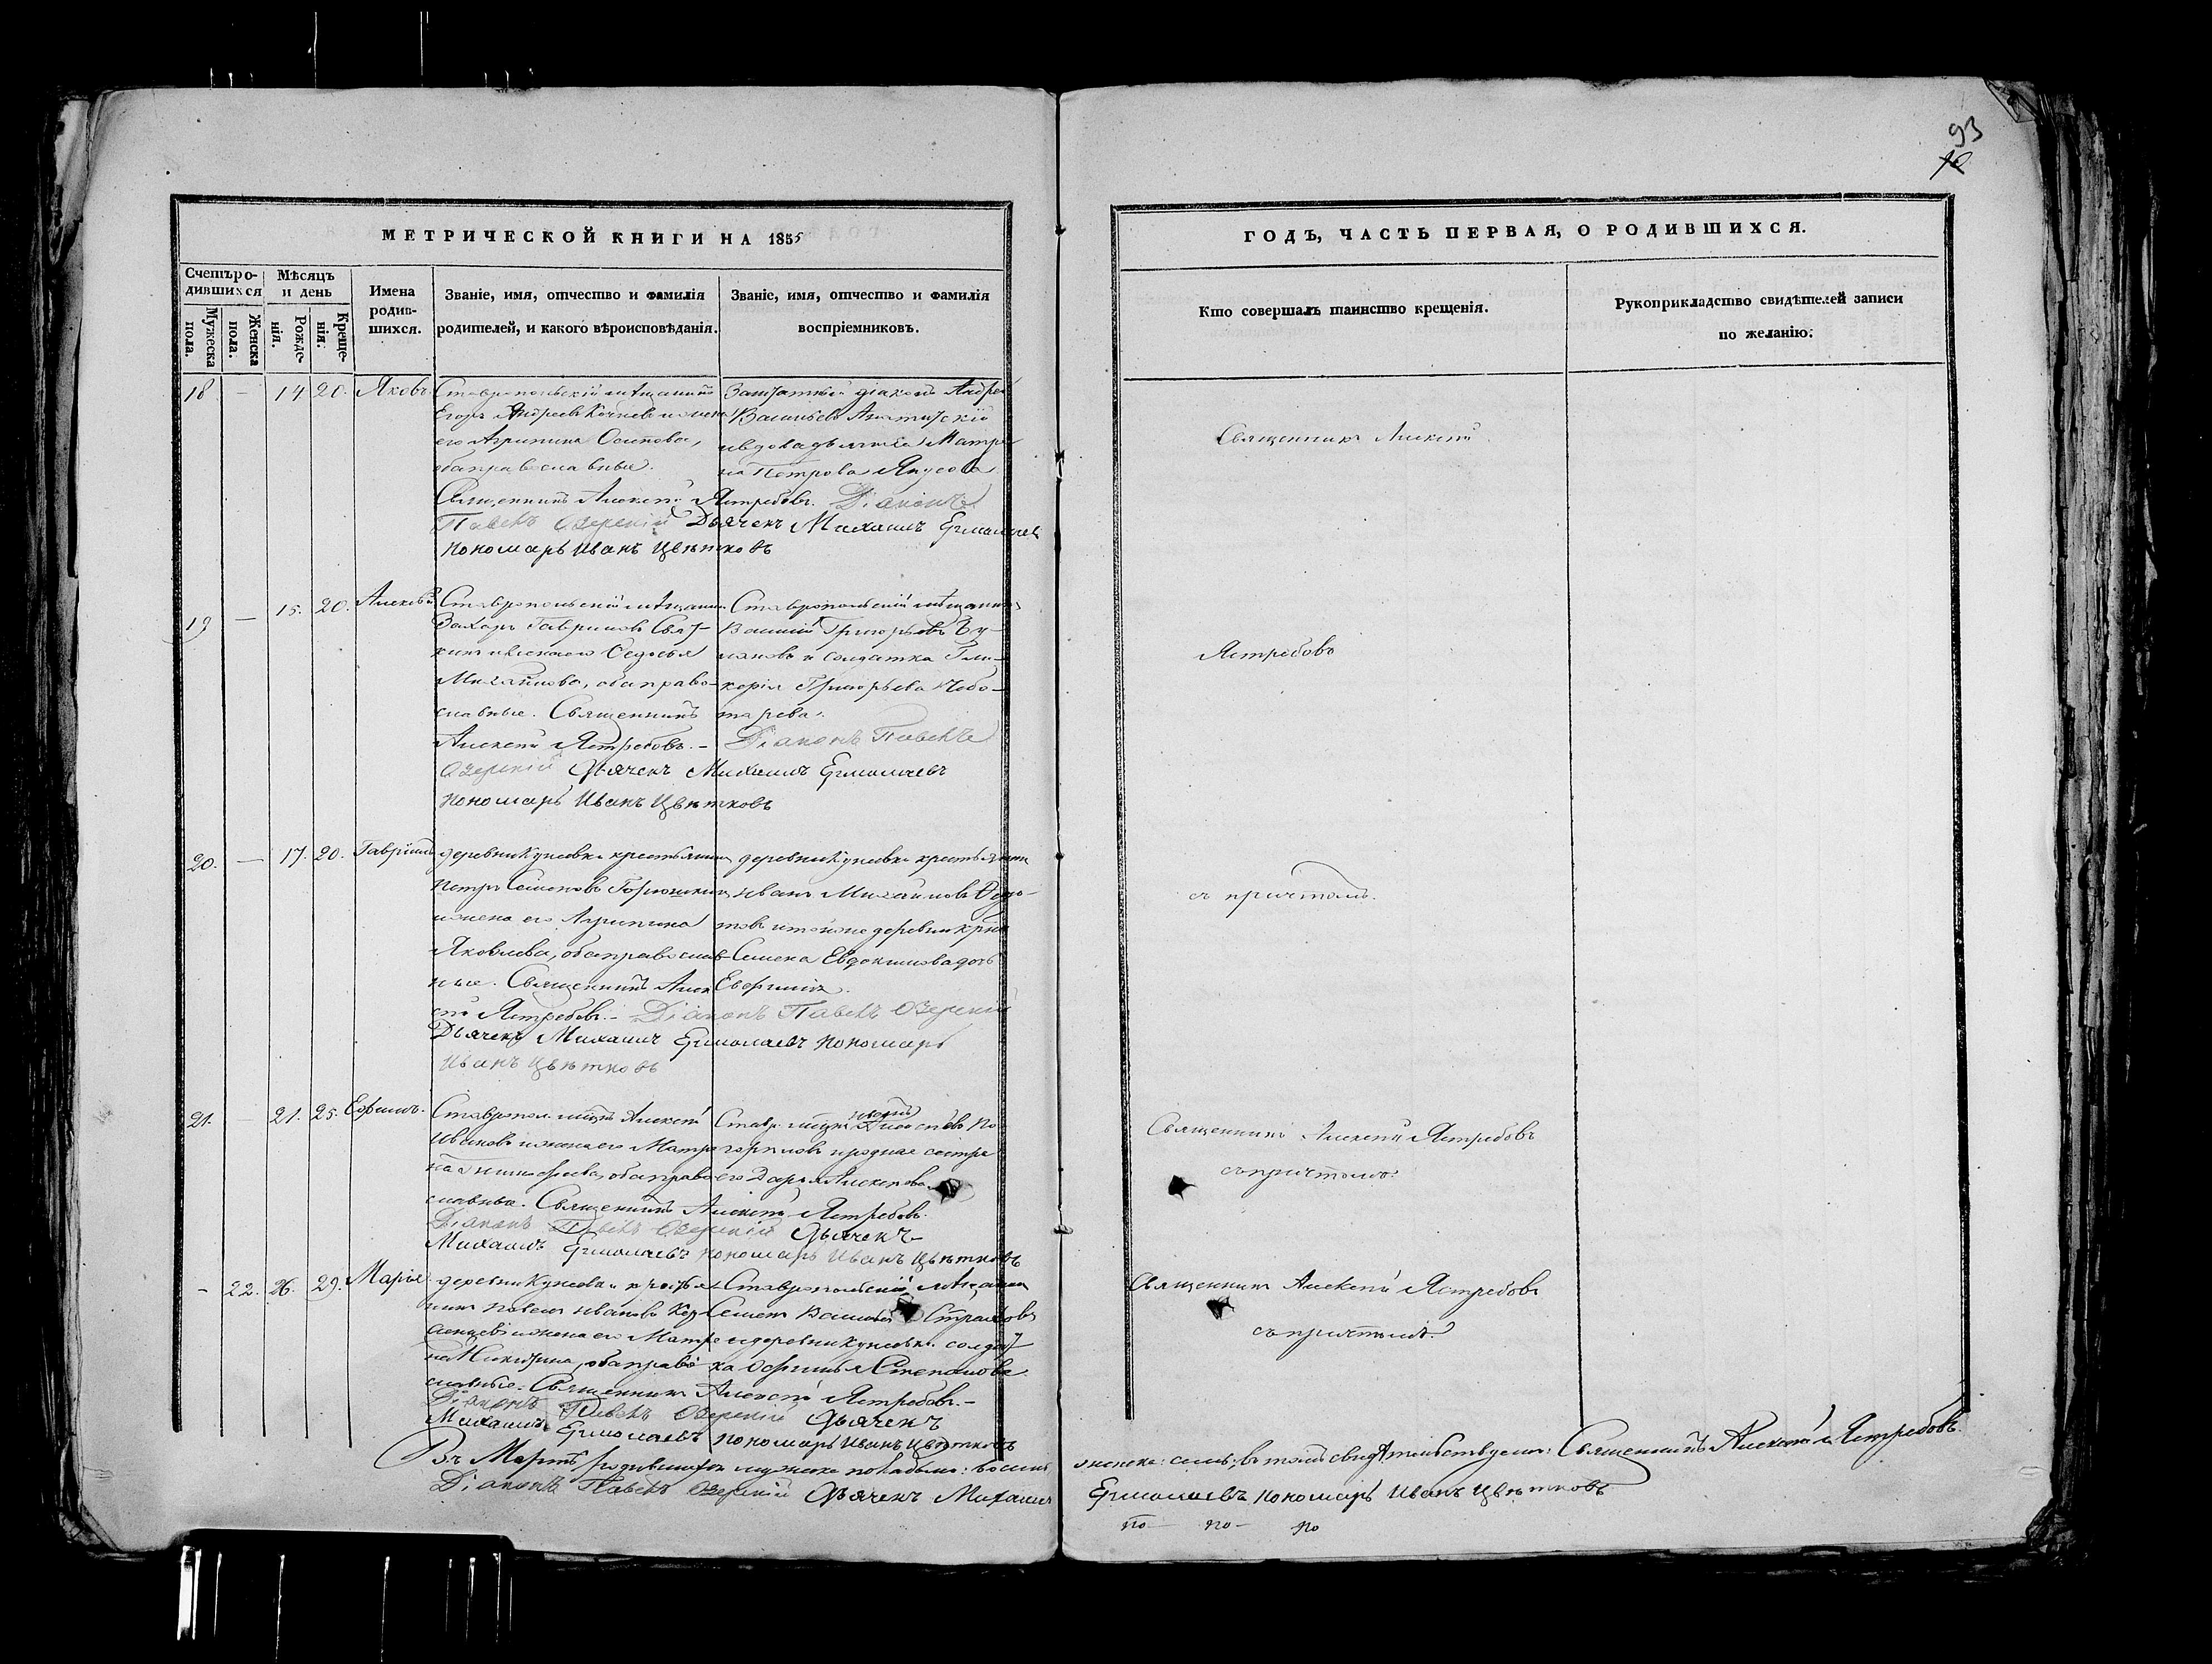 93
МЕТРИЧЕСКОЙ КНИГИ НА 1855
Счетъ родившихся
Мужеска пола.
Женска пола.
Мѣсяцъ и день
Рожденія.
Крещенія.
Имена родившихся.
Званіе, имя, отчество и фамилія родителей, и какого вѣроисповѣданія.
Званіе, имя, отчество и фамилія воспріемниковъ.
18 — 14 20. Яковъ
Ставропольскій мѣщанинъ
Егоръ Андреевъ и жена
его Агрипина Осипова,
оба православные.
Заштатный діаконъ Андрей
Васильевъ
и вдова Матре
на Петрова
Священникъ Алексѣй Ястребовъ. Діаконъ
Павелъ Озерскій Дьячекъ Михаилъ Ермолаевъ
Пономарь Иванъ Цвѣтковъ
19 — 15. 20. Алексѣй
Ставропольскій мѣщанинъ
Захаръ Гавриловъ
и жена его Федосья
Михайлова, оба право-
славные. Священникъ
Алексѣй Ястребовъ. —
Ставропольскій мѣщанинъ
Василій Григорьевъ Бу-
и солдатка Гли-
керія Григорьева Чебо-
тарева.
Діаконъ Павелъ
Озерскій Дьячекъ Михаилъ Ермолаевъ
Пономарь Иванъ Цвѣтковъ
20. — 17. 20. Гавріилъ
деревни Кунеевки крестьянинъ
Петръ Семеновъ Горюшкинъ
и жена его Агрипина
Яковлева, оба православ-
ные. Священникъ Алек
сѣй Ястребовъ. —
деревни Кунеевки крестьянинъ
Иванъ Михайловъ Федо-
товъ и той же деревни
Семена Евдокимова дочь
Евфимія.
Діаконъ Павелъ Озерскій
Дьячекъ Михаилъ Ермолаевъ Пономарь
Иванъ Цвѣтковъ
21. — 21. 25. Ефимъ.
Ставропол. Алексѣй
Ивановъ и жена его Матре
на оба право
славные. Священникъ Алексѣй Ястребовъ.
Ставр.
и родная сестра
его Дарья Алексеева
Діаконъ Павелъ Озерскій Дьячекъ
Михаилъ Ермолаевъ Пономарь Иванъ Цвѣтковъ
— 22. 26. 29. Марія
деревни Кунеевки крестья-
нинъ Павелъ Ивановъ
и жена его Матре
на Никитина, оба право
славные. Священникъ Алексѣй Ястребовъ. —
Ставропольскій мѣщанинъ
Семенъ Васильевъ Страховъ
и деревни Кунеевки солдат
ка Степанова
Діаконъ Павелъ Озерскій Дьячекъ
Михаилъ Ермолаевъ Пономарь Иванъ Цвѣтковъ
Въ Мартѣ родившихся мужеска пола было: восемь,
Діаконъ Павелъ Озерскій Дьячекъ Михаилъ
ГОДЪ, ЧАСТЬ ПЕРВАЯ, О РОДИВШИХСЯ.
Кто совершалъ таинство крещенія.
Рукоприкладство свидѣтелей записи по желанію.
Священникъ Алексѣй
Ястребовъ
съ причтомъ.
Священникъ Алексѣй Ястребовъ
съ причтомъ.
Священникъ Алексѣй Ястребовъ
съ причтомъ.
женска: семь, въ томъ свидѣтельствуемъ: Священникъ Алексѣй Ястребовъ.
Ермолаевъ Пономарь Иванъ Цвѣтковъ
по — по — по